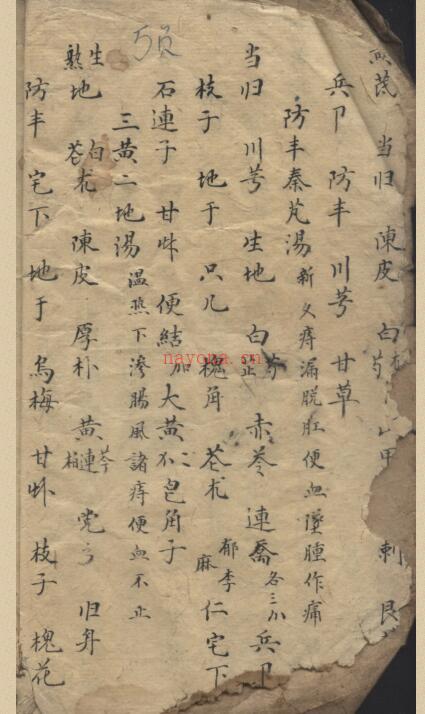 5页
芪 当归 陳皮 白朮芍 甲 刺 艮
兵卩 防丰 川芎 甘草
防丰秦艽湯 新久痔漏脱肛便血墜腫作痛
当归 川芎 生地 白芍芷 赤苓 連喬 各三 兵卩
枝子 地于 只儿 槐角 苍朮 郁李麻仁 宅下
石連子 甘艸 便結加大黄 皂角子
三黄二地湯 温热下渗腸風諸痔便血不止
生熟地 白苍朮 陳皮 厚朴 黄芩連柏 党 归身
防丰 宅下 地于 烏梅 甘艸 枝子 槐花
nayona.cn